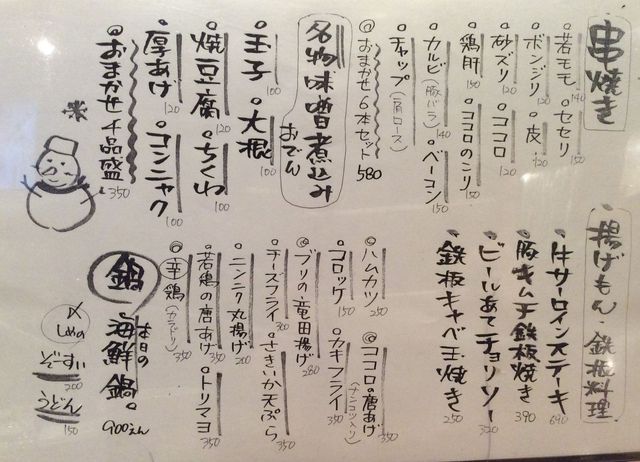 串焼き
若モモ 140
セセリ 150
ボンジリ 120
皮 120
砂ズリ 120
ココロ 120
鶏肝 150
ココロのこり 150
カルビ(豚バラ) 140
ベーコン 150
チャップ(肩ロース)
おまかせ6本セット 580
名物味噌煮込みおでん
玉子 100
大根 100
焼豆腐 120
ちくわ 100
厚あげ 120
コンニャク 100
おまかせ4品盛 350
揚げもん・鉄板料理
牛サーロインステーキ 690
豚キムチ鉄板焼き 390
ビールあてチョリソー 320
鉄板キャベ玉焼き 250
ハムカツ 250
ココロの唐あげ(ナンコツ入り) 350
コロッケ 150
カキフライ 350
ブリの竜田揚げ 280
チーズフライ 300
さきいか天ぷら 350
ニンニク丸揚げ 200
若鶏の唐あげ 350
トリマヨ 350
辛鶏(カラドリ) 350
鍋
本日の海鮮鍋 900えん
〆しめの
ぞーすい 200
うどん 150